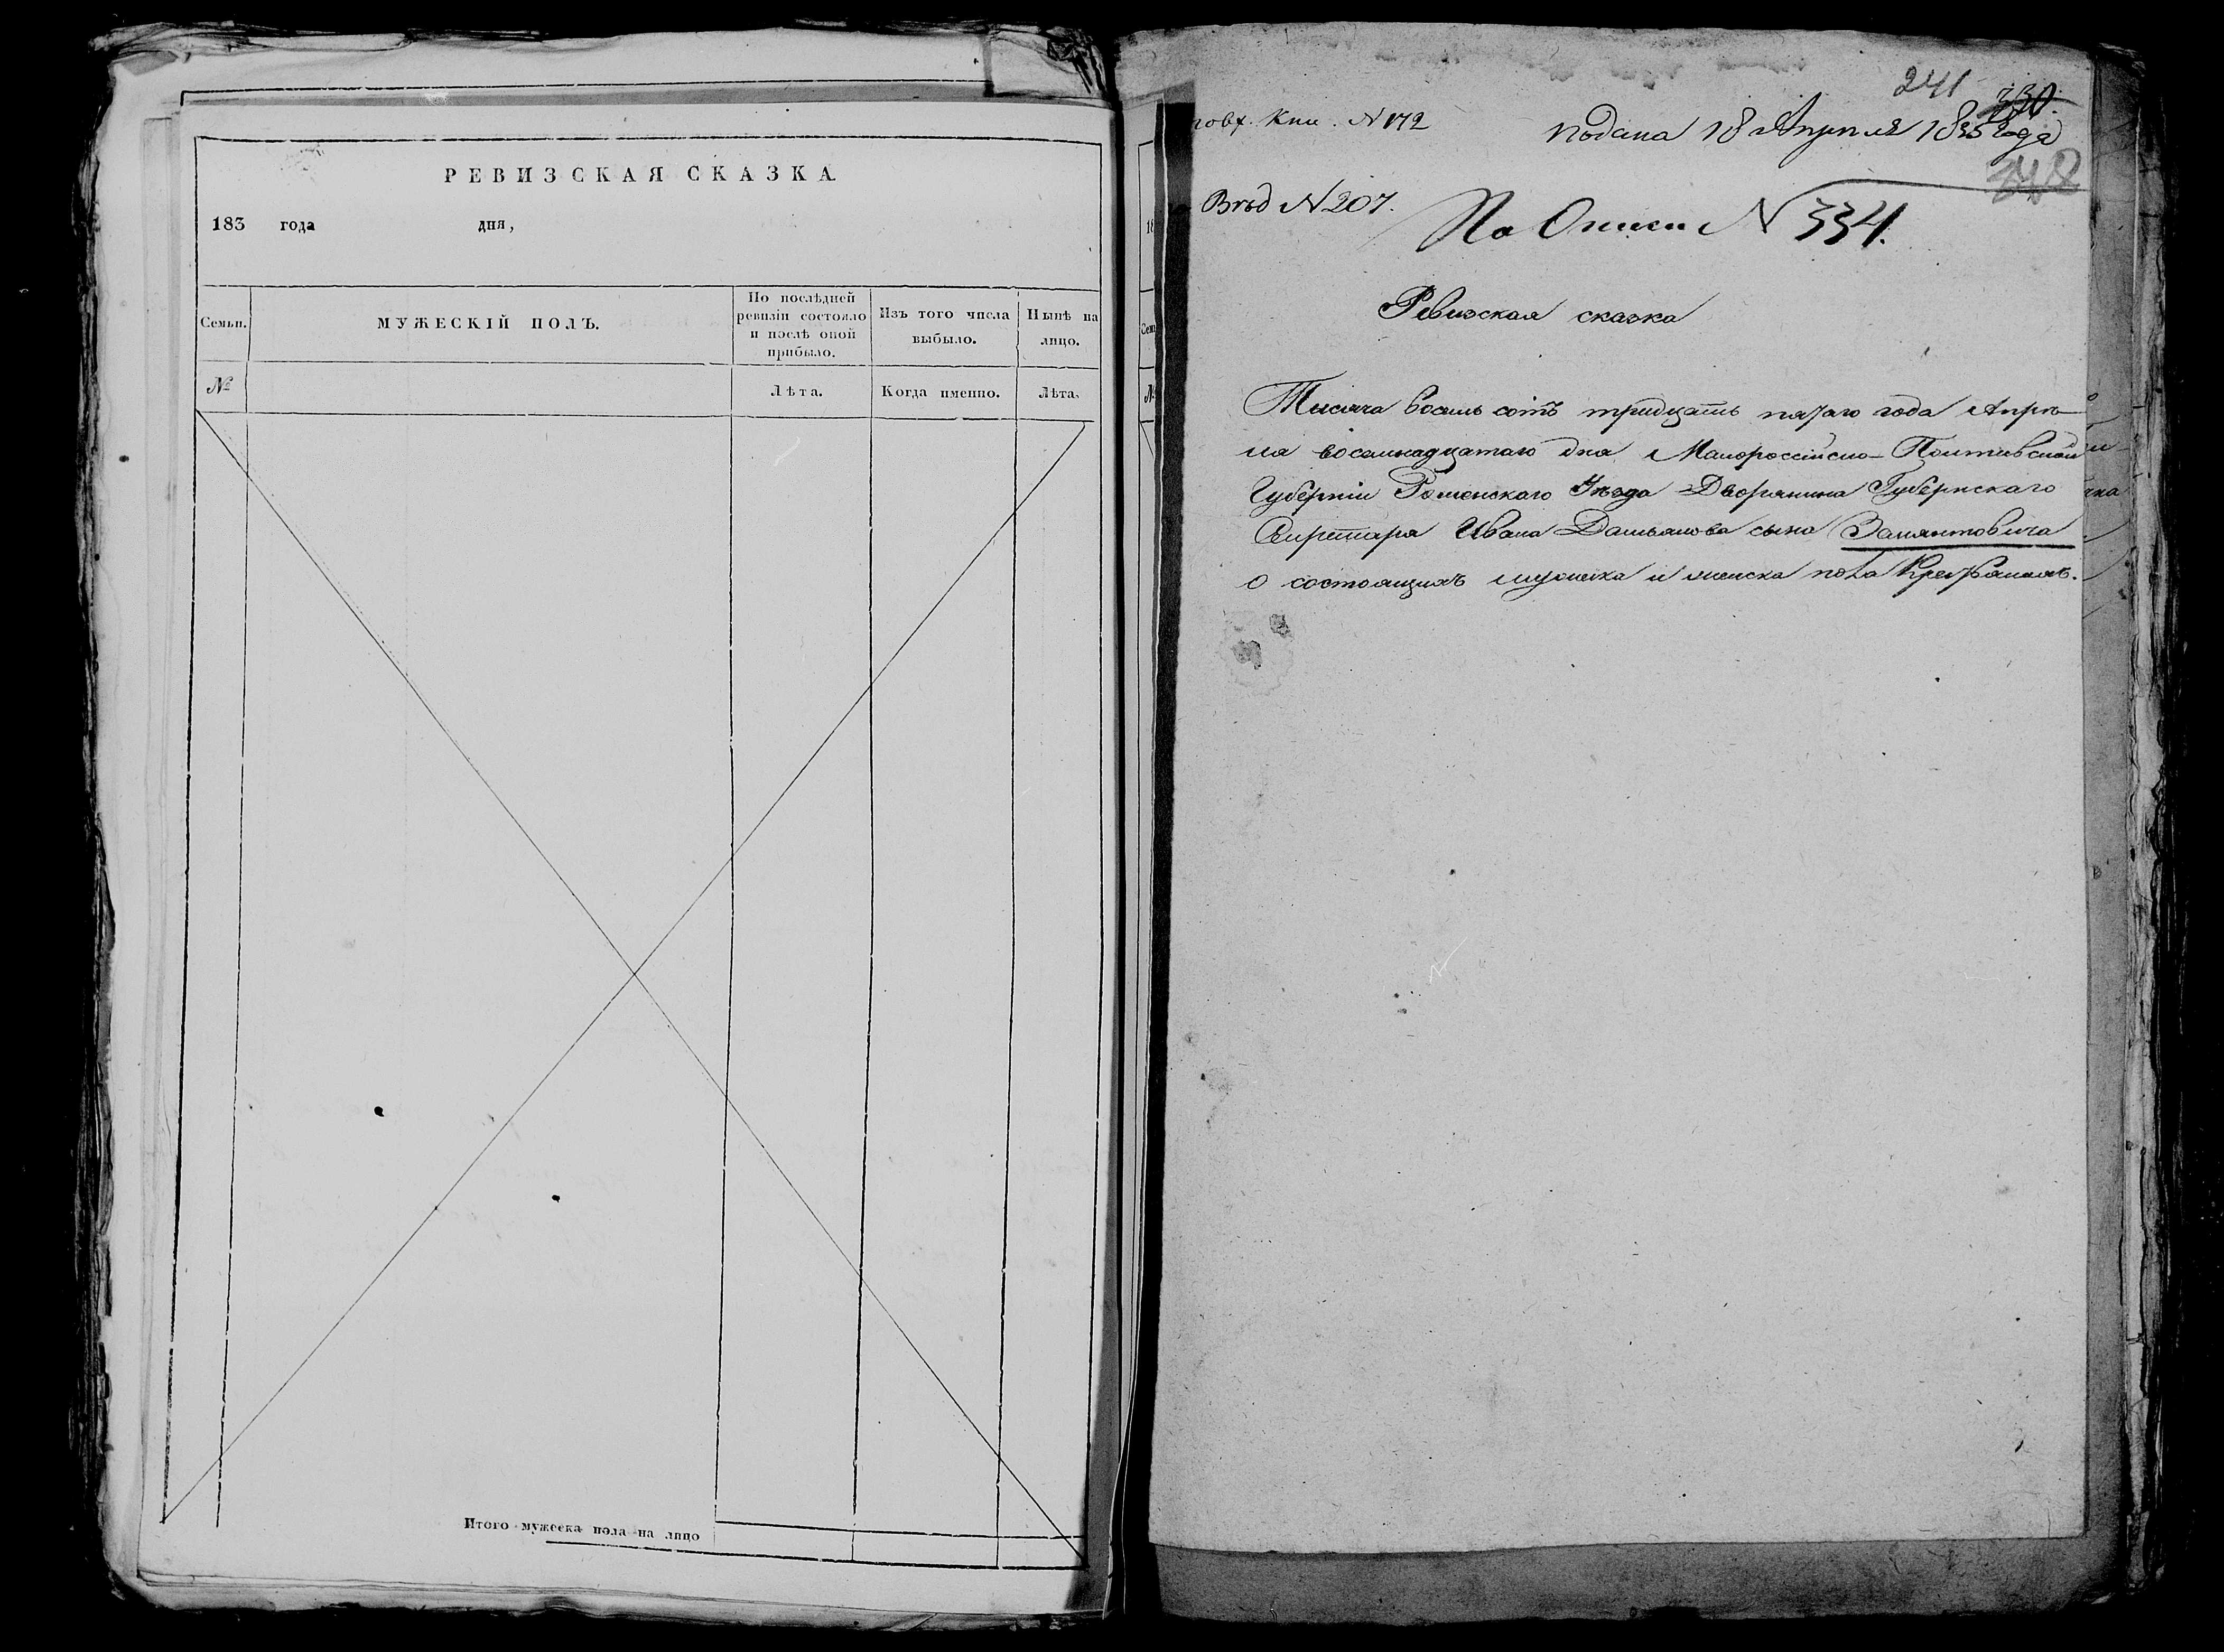 РЕВИЗСКАЯ СКАЗКА
183 года дня,
Семьи.
МУЖЕСКІЙ ПОЛЪ.
По послѣдней ревизіи состояло и послѣ оной прибыло.
Изъ того числа выбыло.
Нынѣ на лицо.
№
Лѣта.
Когда именно.
Лѣта.
Итого мужеска пола на лицо
241
330.
Кни. N 172
подана 18 Апрѣля 1835 года
Вѣд N 207.
По Описи N 334.
Ревизская сказка
Тысяча восемь сотъ тридцать пятаго года Апрѣ-
ля восемнадцатаго дня Малороссійско-Полтавской
Губерніи Роменскаго Уѣзда Дворянина Губернскаго
Секретаря Ивана Дамьянова сына
о состоящихъ мужеска и женска пола Крестьянахъ.